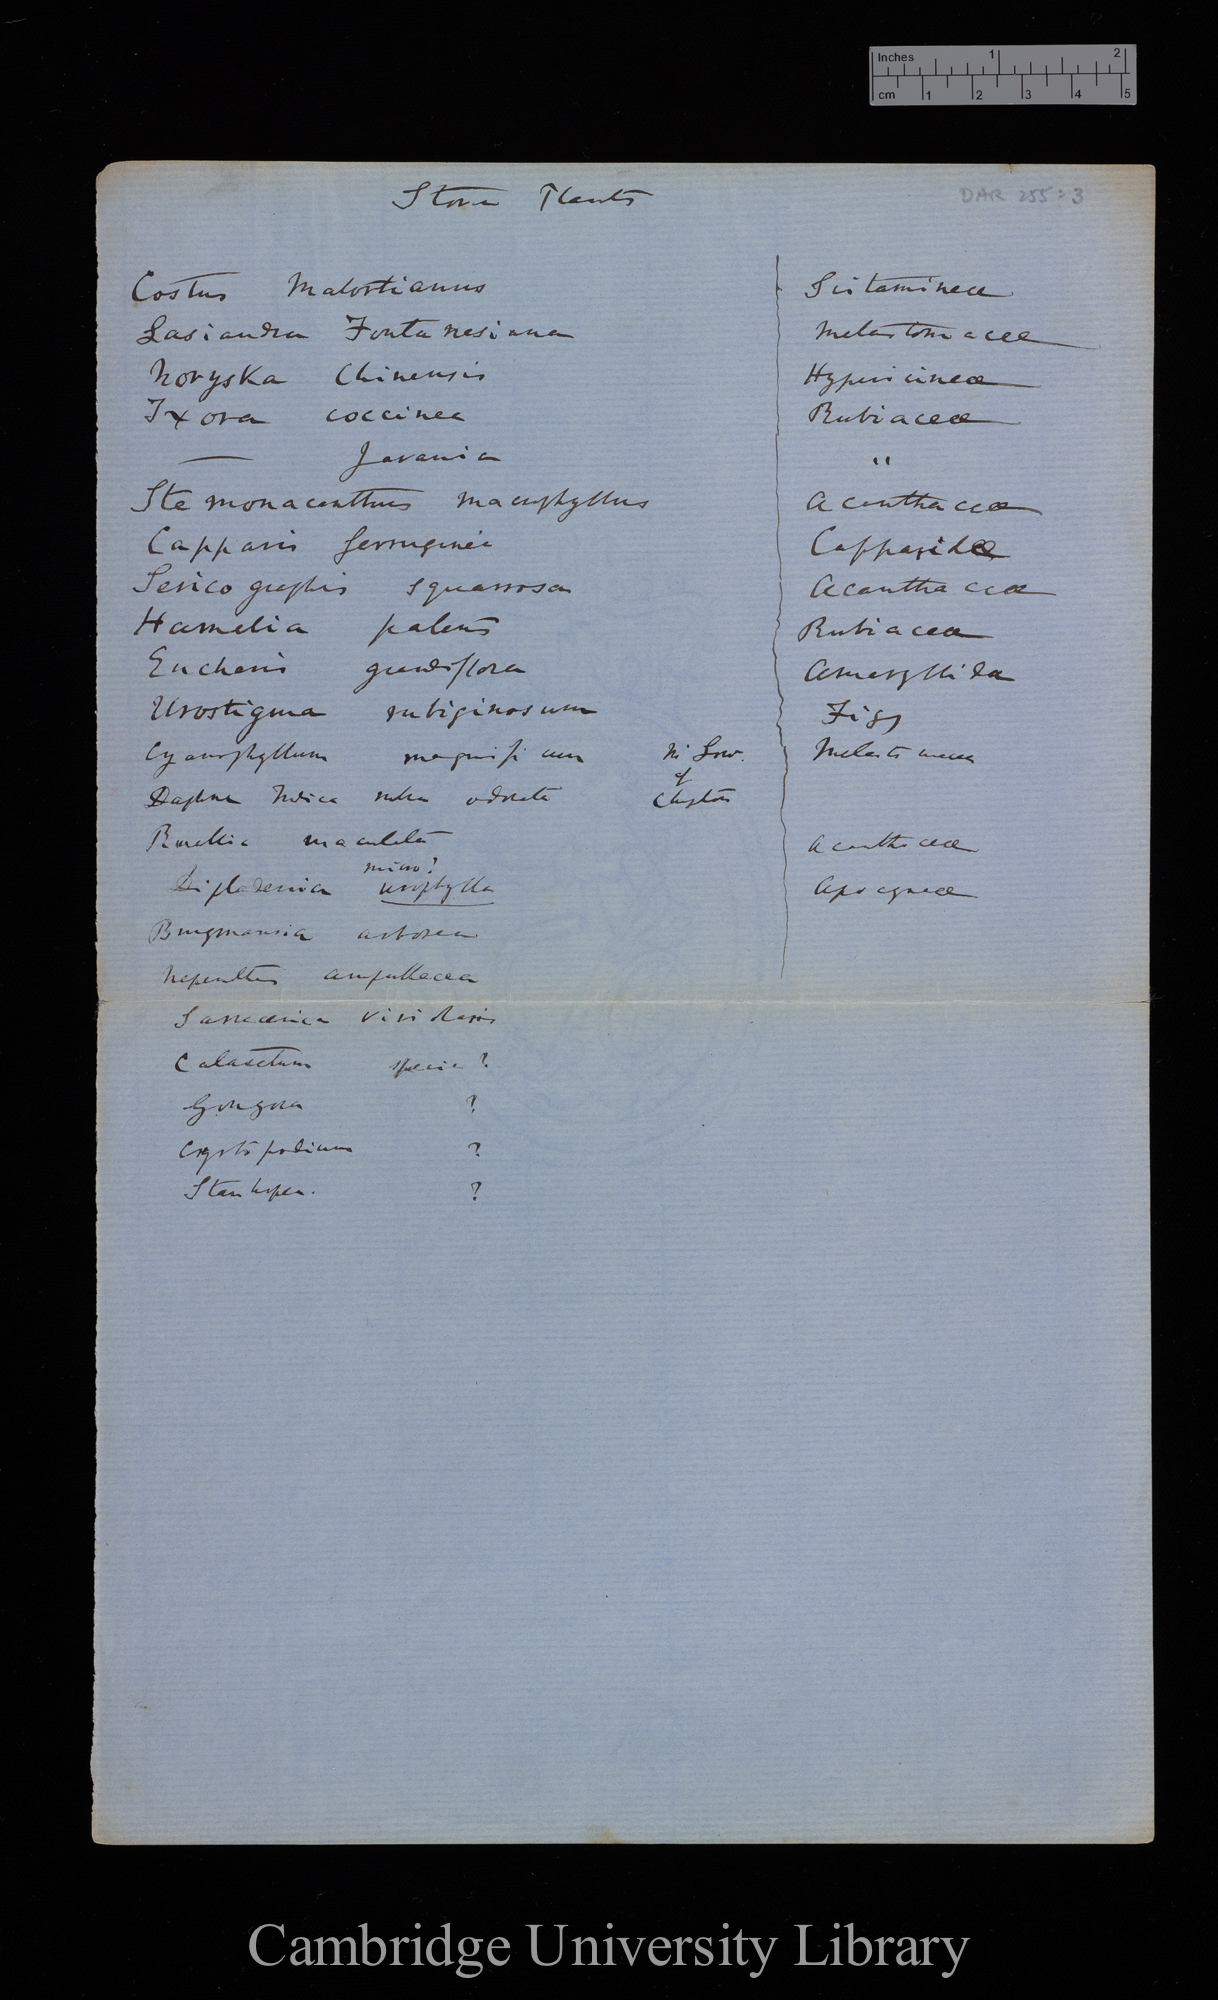 Inches 1 2
cm 1 2 3 4 5
Stove Plants
DAR 255:3
Costus Malortianus Scitamineæ
Lasiandra Fontanesiana Melastomaceæ
Noryska Chinensis Hypericineæ
Ixora coccinea Rubiaceæ
— Javanica "
Stemonacanthus macrophyllus Acanthaceæ
Capparis ferruginea Capparideæ
Sericographis squarrosa Acanthaceæ
Hamelia patens Rubiaceæ
Eucharis grandiflora Amaryllida
Urostigma rubiginosum Figs
Cyanophyllum magnificum Mr Low. Melastomacea
of
Daphne Indica rubra odorata Clapton
Ruellia maculata Acanthaceæ
micro?
Dipladenia urophylla Apocyneæ
Brugmansia arborea
Nepenthes ampullacea
Sarracenia
Catasetum species ?
Gongora ?
Cyrtopodium ?
Stanhopea. ?
Cambridge University Library